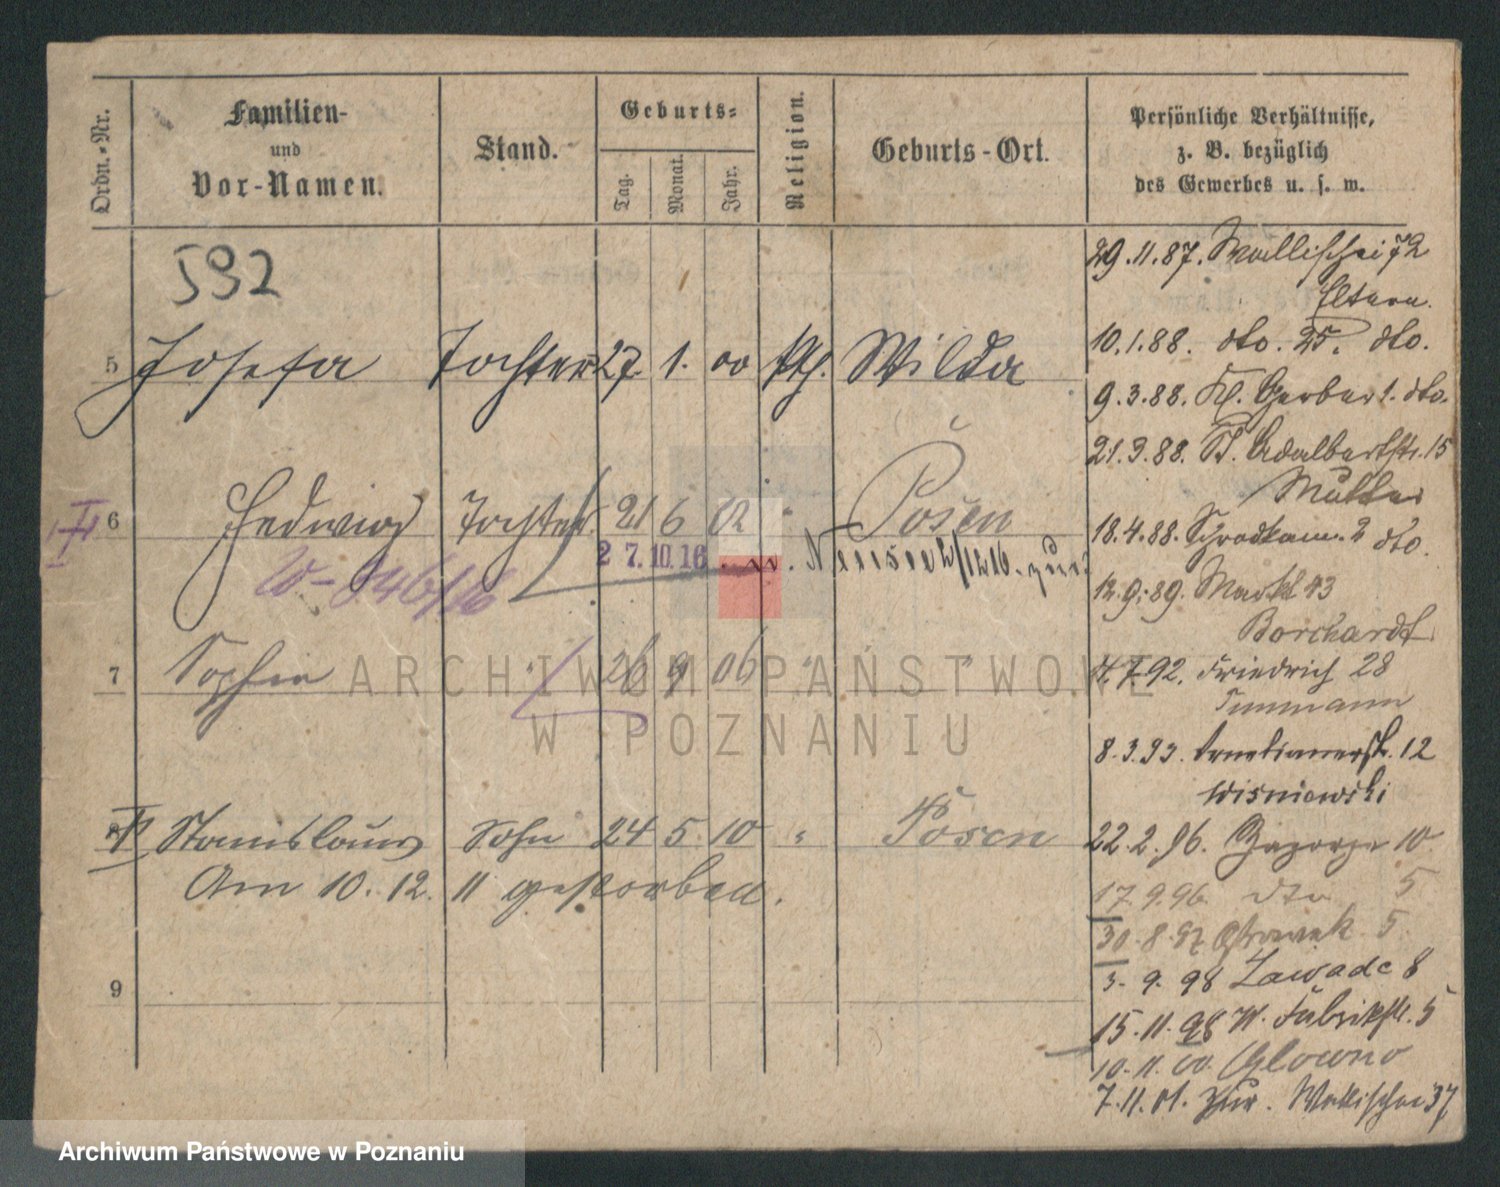 Ordn.-Nr.
Familien-
und
Vor-Namen.
Stand.
Geburts-
Tag.
Monat.
Jahr.
Religion.
Geburts-Ort.
Persönliche Verhältnisse,
z. B. bezüglich
des Gewerbes u. s. w.
592
5 Josefa Tochter 27 1. 00 kth. Wilda
6 Hedwig Tochter 21 6 02 " Posen
27.10.16 n. Neisse 2/12 16. zur.
W- 546/16
7 Sophie " 26 9 06 " "
Stanislaus Sohn 24 5. 10 " Posen
Am 10. 12. 11 gestorben.
9
29.11.87. Wallischei 72
Eltern.
10.1.88. dto. 25. dto.
9.3.88. Kl. Gerber 1. dto.
21.3.88. St. Adalbertstr. 15
Mutter
18.4.88. Schrodkam. 2 dto.
12.9.89. Markt 43
Borchardt
4.7.92. Friedrich 28
Timmann
8.3.93. 12
Wisniewski
22.2.96. Zagorze 10
17.9.96. dto 5
30.8.97 Ostrowek 5
3.9.98 Zawade 8
15.11.98 W. Fabrikstr. 5
10.11.00. Glowno
7.11.01. zur. Wallischei 37
ARCHIWUM PAŃSTWOWE
W POZNANIU
Archiwum Państwowe w Poznaniu